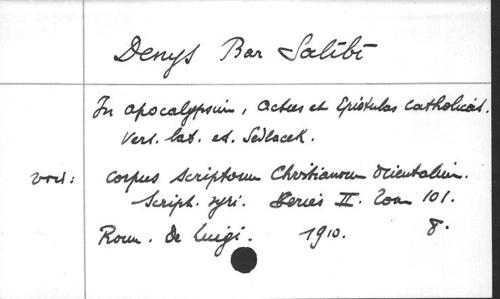 Denys Bar Salibi
In Apocalypsim, Actus et Epistulas catholicas.
Vert. lat. ed. Sedlacek.
voir: Corpus Scriptorum Christianorum Orientalium.
Script. syri. Series II. Tom 101.
Rom. de Luigi. 1910. 8.